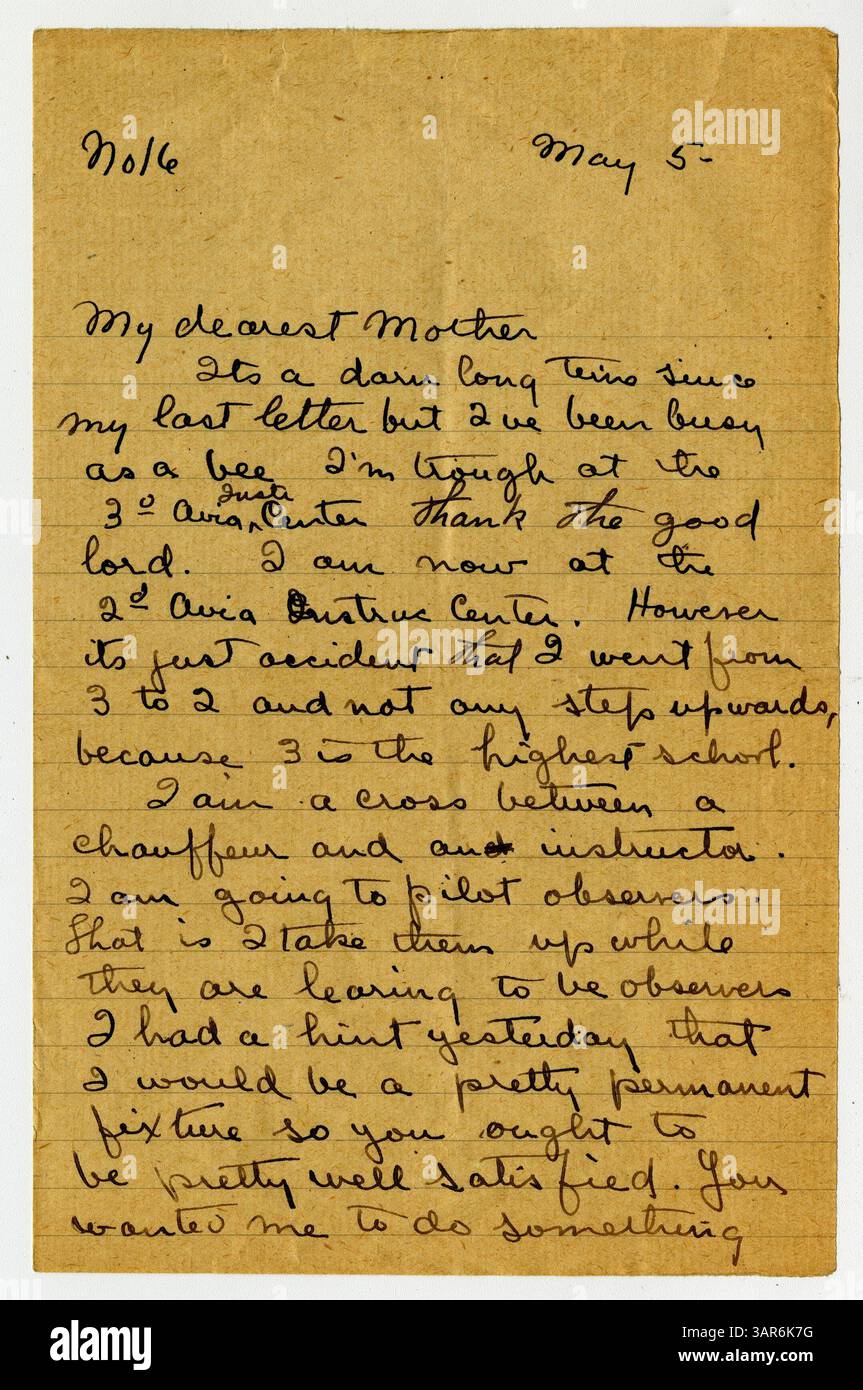 No16 May 5-
My dearest Mother
Its a darn long time since
my last letter but I've been busy
as a bee I'm trough at the
3d Avia Instr Center thank the good
lord. I am now at the
2d Avia Instruc Center. However
its just accident that I went from
3 to 2 and not any step upwards,
because 3 is the highest school.
I am a cross between a
chauffeur and an instructor.
I am going to pilot observers.
That is I take them up while
they are learing to be observers
I had a hint yesterday that
I would be a pretty permanent
fixture so you ought to
be pretty well satisfied. You
wanted me to do something
alamy
Image ID: 3AR6K7G
www.alamy.com